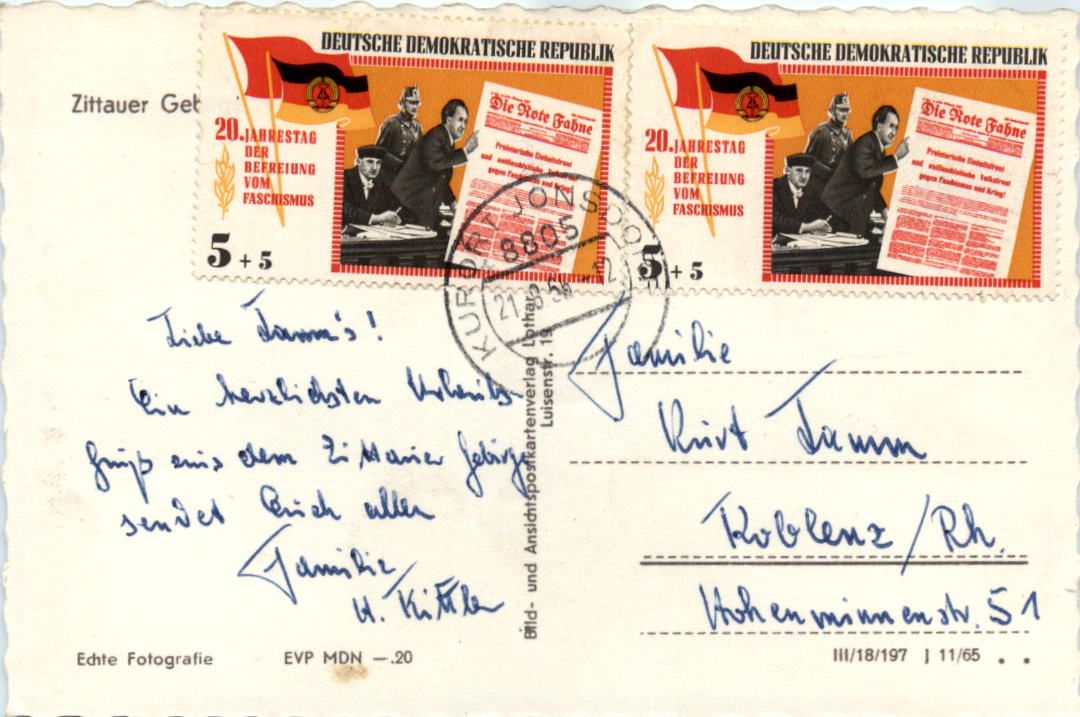 DEUTSCHE DEMOKRATISCHE REPUBLIK
20. JAHRESTAG
DER
BEFREIUNG
VOM
FASCHISMUS
Die Rote Fahne
Proletarische Einheitsfront
und antifaschistische Volksfront
gegen Faschismus und Krieg!
5 + 5
DEUTSCHE DEMOKRATISCHE REPUBLIK
20. JAHRESTAG
DER
BEFREIUNG
VOM
FASCHISMUS
Die Rote Fahne
Proletarische Einheitsfront
und antifaschistische Volksfront
gegen Faschismus und Krieg!
5 + 5
Zittauer Geb
KURORT JONSDORF
8805
21. 8. -12
Liebe Tamm's!
Ein herzlichsten Urlaubs-
gruß aus dem Zittauer Gebirge
sendet Euch allen
Familie
H. Kittler
Bild- und Ansichtspostkartenverlag Lothar
Luisenstr. 19
Familie
Kurt Tamm
Koblenz/Rh.
Hohenminnenstr. 51
Echte Fotografie EVP MDN —.20
III/18/197 J 11/65